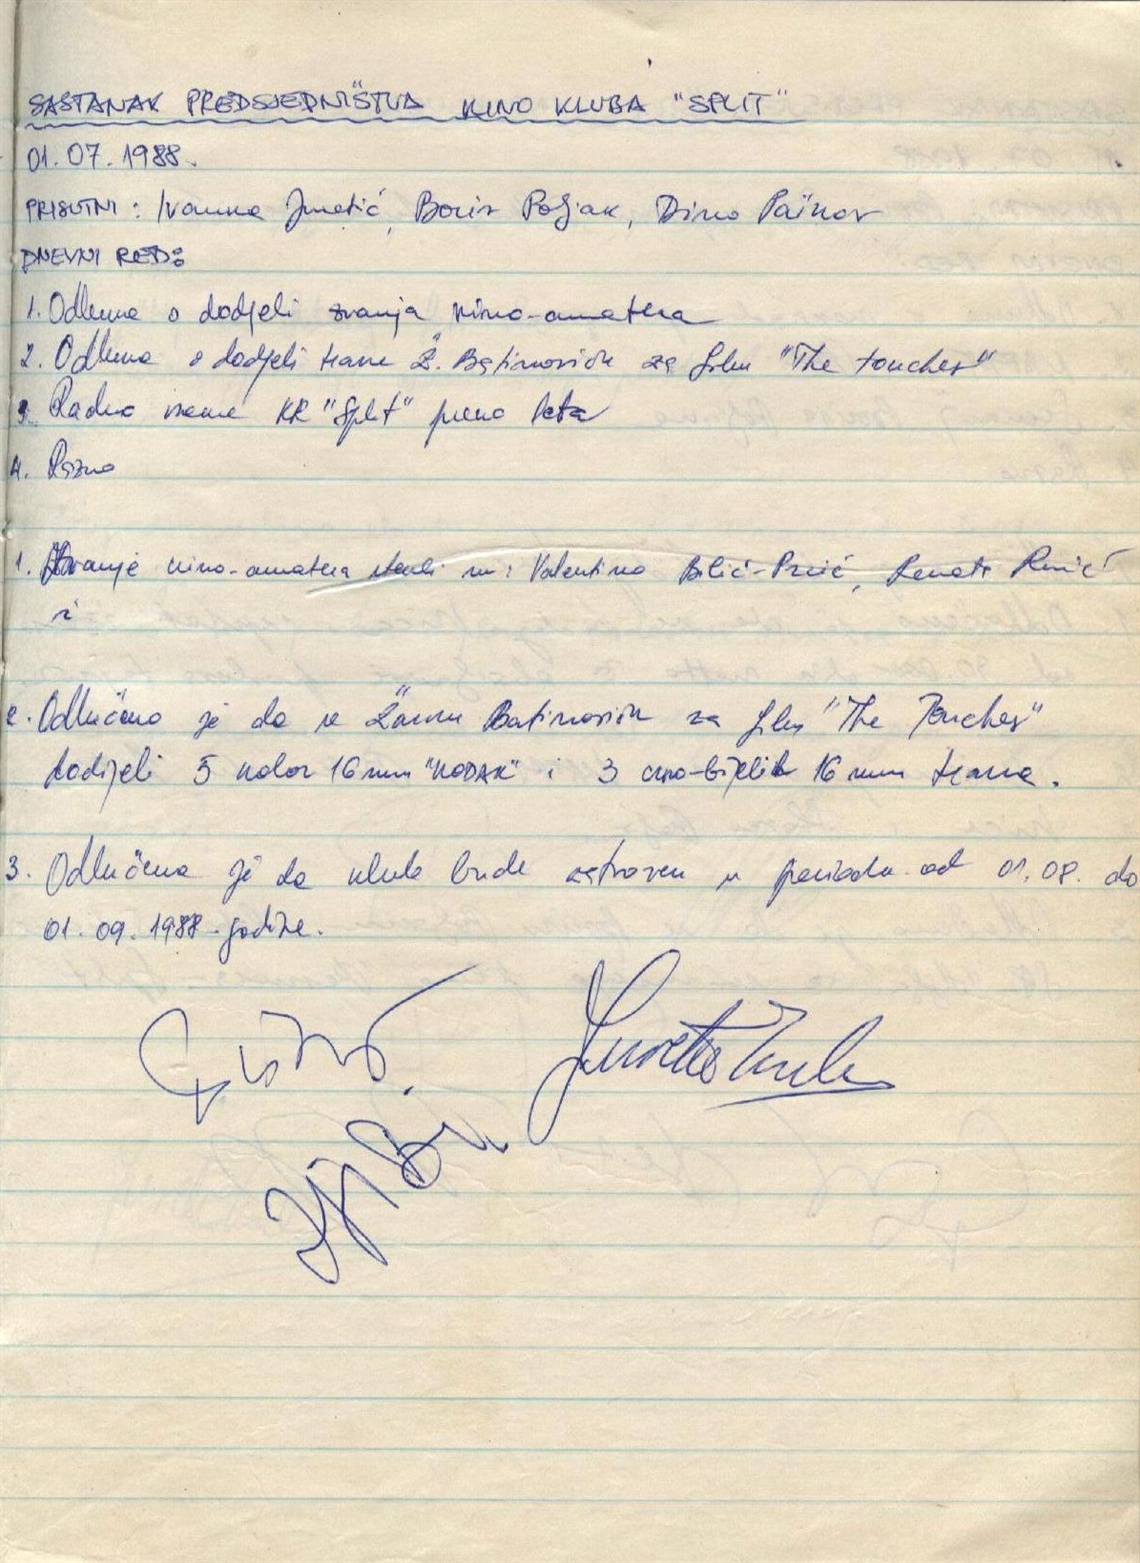 SASTANAK PREDSJEDNIŠTVA KINO KLUBA "SPLIT"
01.07.1988.
PRISUTNI: Ivanka Jmetić, Boris Poljak, Dino
DNEVNI RED:
1. Odluka o dodjeli zvanja kino-amatera
2. Odluka o dodjeli trake Ž. Batinoviću za film "The touches"
3. Radno vreme KK "Split" preko leta
4. Razno
1. Zvanje kino-amatera stekli su: Valentino Bilić-Prcić, Renato
i
2. Odlučeno je da se Žarku Batinoviću za film "The Touches"
dodijeli 5 kolor 16 mm "KODAK" i 3 crno-bijelih 16 mm traka.
3. Odlučeno je da klub bude zatvoren u periodu od 01.08. do
01.09.1988. godine.